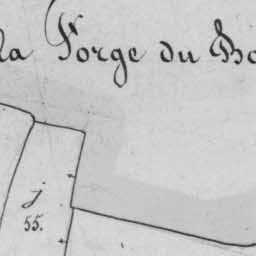 la Forge du Bo
j
55.